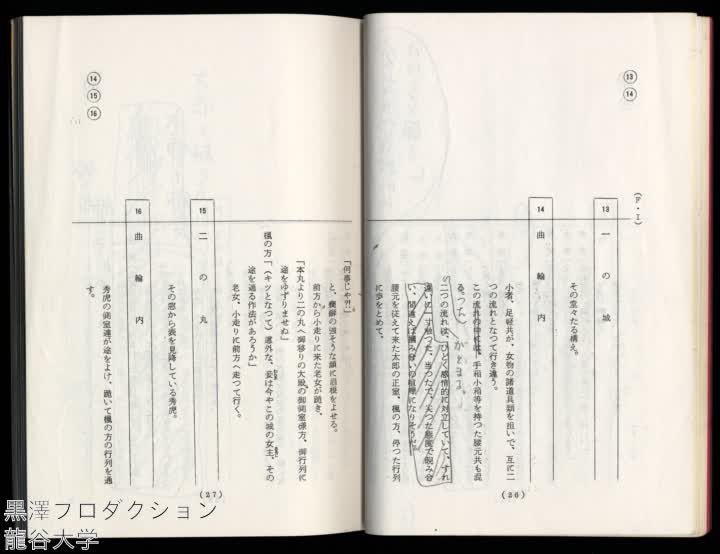 ⑬
⑭
(F・I)
13 一の城
その堂々たる構え。
14 曲輪内
小者、足軽共が、女物の諸道具類を担いで、互に二
つの流れとなつて行き違う。
この流れの中には、手箱小箱等を持つた腰元共も混
る。
二つの流れは、ひどく感情的に対立していて、すれ
違いに一寸触つた、当つたで、尖つた態度で睨み合
い、間違えば摑み合いの喧嘩になりそうだ。
腰元を従えて来た太郎の正室、楓の方、停つた行列
に歩をとめて、
(26)
⑭
⑮
⑯
「何事じゃ⁈」
と、癇癖の強そうな顔に眉根をよせる。
前方から小走りに来た老女が跪き、
「本丸より二の丸へ御移りの大殿の御側室様方、御行列に
途をゆずりませね」
楓の方「(キツとなつて)慮外な、妾は今やこの城の女主、その
途を遮る作法があろうか」
老女、小走りに前方へ走つて行く。
15 二の丸
その窓から表を見降している秀虎。
16 曲輪内
秀虎の側室達が途をよけ、跪いて楓の方の行列を通
す。
(27)
黒澤プロダクション
龍谷大学